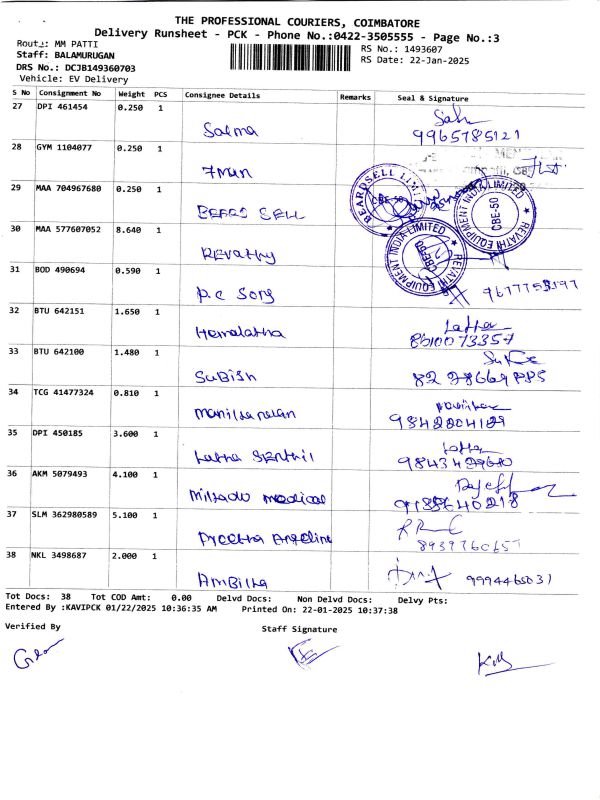 THE PROFESSIONAL COURIERS, COIMBATORE
Delivery Runsheet - PCK - Phone No.:0422-3505555 - Page No.:3
Route: MM PATTI
RS No.: 1493607
Staff: BALAMURUGAN
RS Date: 22-Jan-2025
DRS No.: DCJB149360703
Vehicle: EV Delivery
S No Consignment No Weight PCS Consignee Details Remarks Seal & Signature
27 DPI 461454 0.250 1
Salma
9965785121
28 GYM 1104077 0.250 1
7man
29 MAA 704967680 0.250 1
BEARD SELL
BEARDSELL LIMITED
CBE-50
REVATHI EQUIPMENT INDIA LIMITED
CBE-50
30 MAA 577607052 8.640 1
REvathy
REVATHI EQUIPMENT INDIA LIMITED
CBE-50
31 BOD 490694 0.590 1
P.C Song
32 BTU 642151 1.650 1
Hemalatha
Latha
33 BTU 642100 1.480 1
SuBISh
34 TCG 41477324 0.810 1
9842204129
35 DPI 450185 3.600 1
Latha SENthil
Latha
36 AKM 5079493 4.100 1
medical
37 SLM 362980589 5.100 1
Preetha Angeline
8939760657
38 NKL 3498687 2.000 1
AmBIka
9994465031
Tot Docs: 38 Tot COD Amt: 0.00 Delvd Docs: Non Delvd Docs: Delvy Pts:
Entered By :KAVIPCK 01/22/2025 10:36:35 AM Printed On: 22-01-2025 10:37:38
Verified By Staff Signature